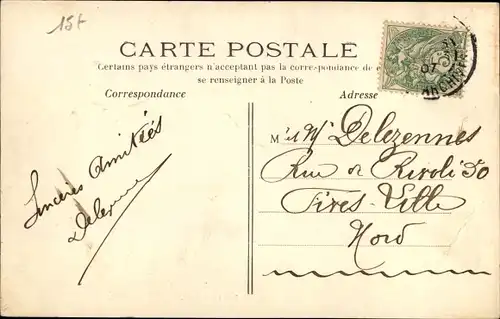 15f
CARTE POSTALE
Certains pays étrangers n'acceptent pas la correspondance de
se renseigner à la Poste
Correspondance
Adresse
Sincères Amitiés
Delezenne
M Delezennes
Rue de Rivoli 50
Fives-Lille
Nord